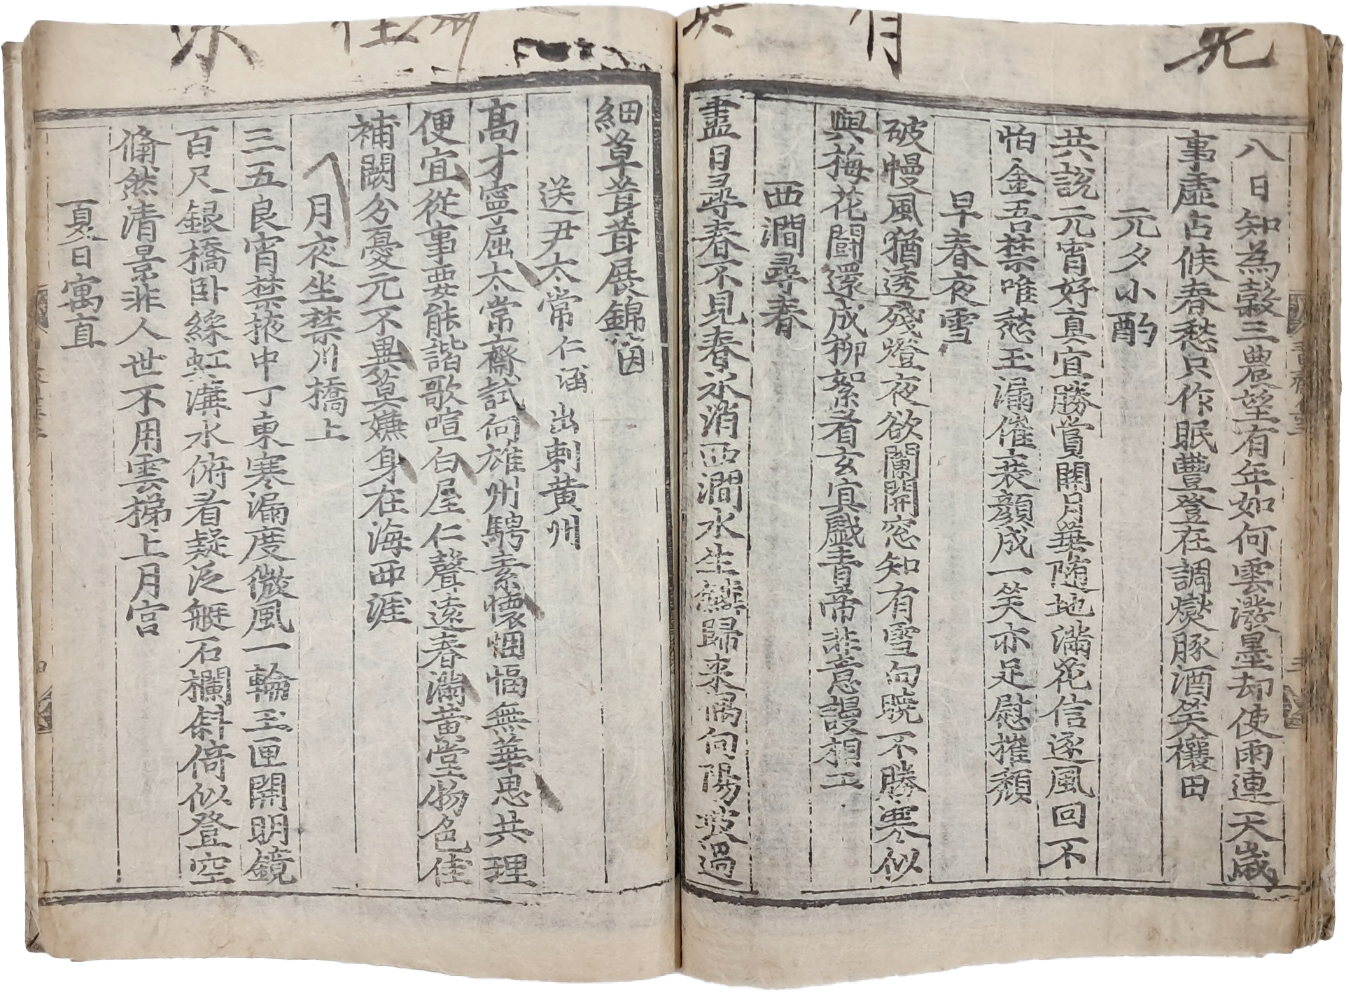 八日知為穀三農望有年如何雲潑墨却使雨連天歲
事虛占候春愁只作眠豊登在調燮豚酒笑穰田
元夕小酌
共說元宵好真宜勝賞開月無隨地滿花信逐風回不
怕金吾禁唯愁玉漏催衰顔成一笑亦足慰摧頹
早春夜雪
破幔風猶透殘燈夜欲闌開窓知有雪向曉不勝寒似
與梅花鬪還成柳絮看玄冥戲青帝非意謾相干
西澗尋春
盡日尋春不見春氷消西澗水生鱗歸來偶向陽坡過
細草茸茸展錦茵
送尹太常仁涵出刺黃州
高才寧屈太常齋試向雄州騁素懷悃愊無華思共理
便宜從事要能諧歌喧白屋仁聲遠春滿黃堂物色佳
補闕分憂元不異莫嫌身在海西涯
月夜坐禁川橋上
三五良宵禁掖中丁東寒漏度微風一輪玉匣開明鏡
百尺銀橋卧綵虹溝水俯看疑泛艇石欄斜倚似登空
翛然清景非人世不用雲梯上月宮
夏日寓直